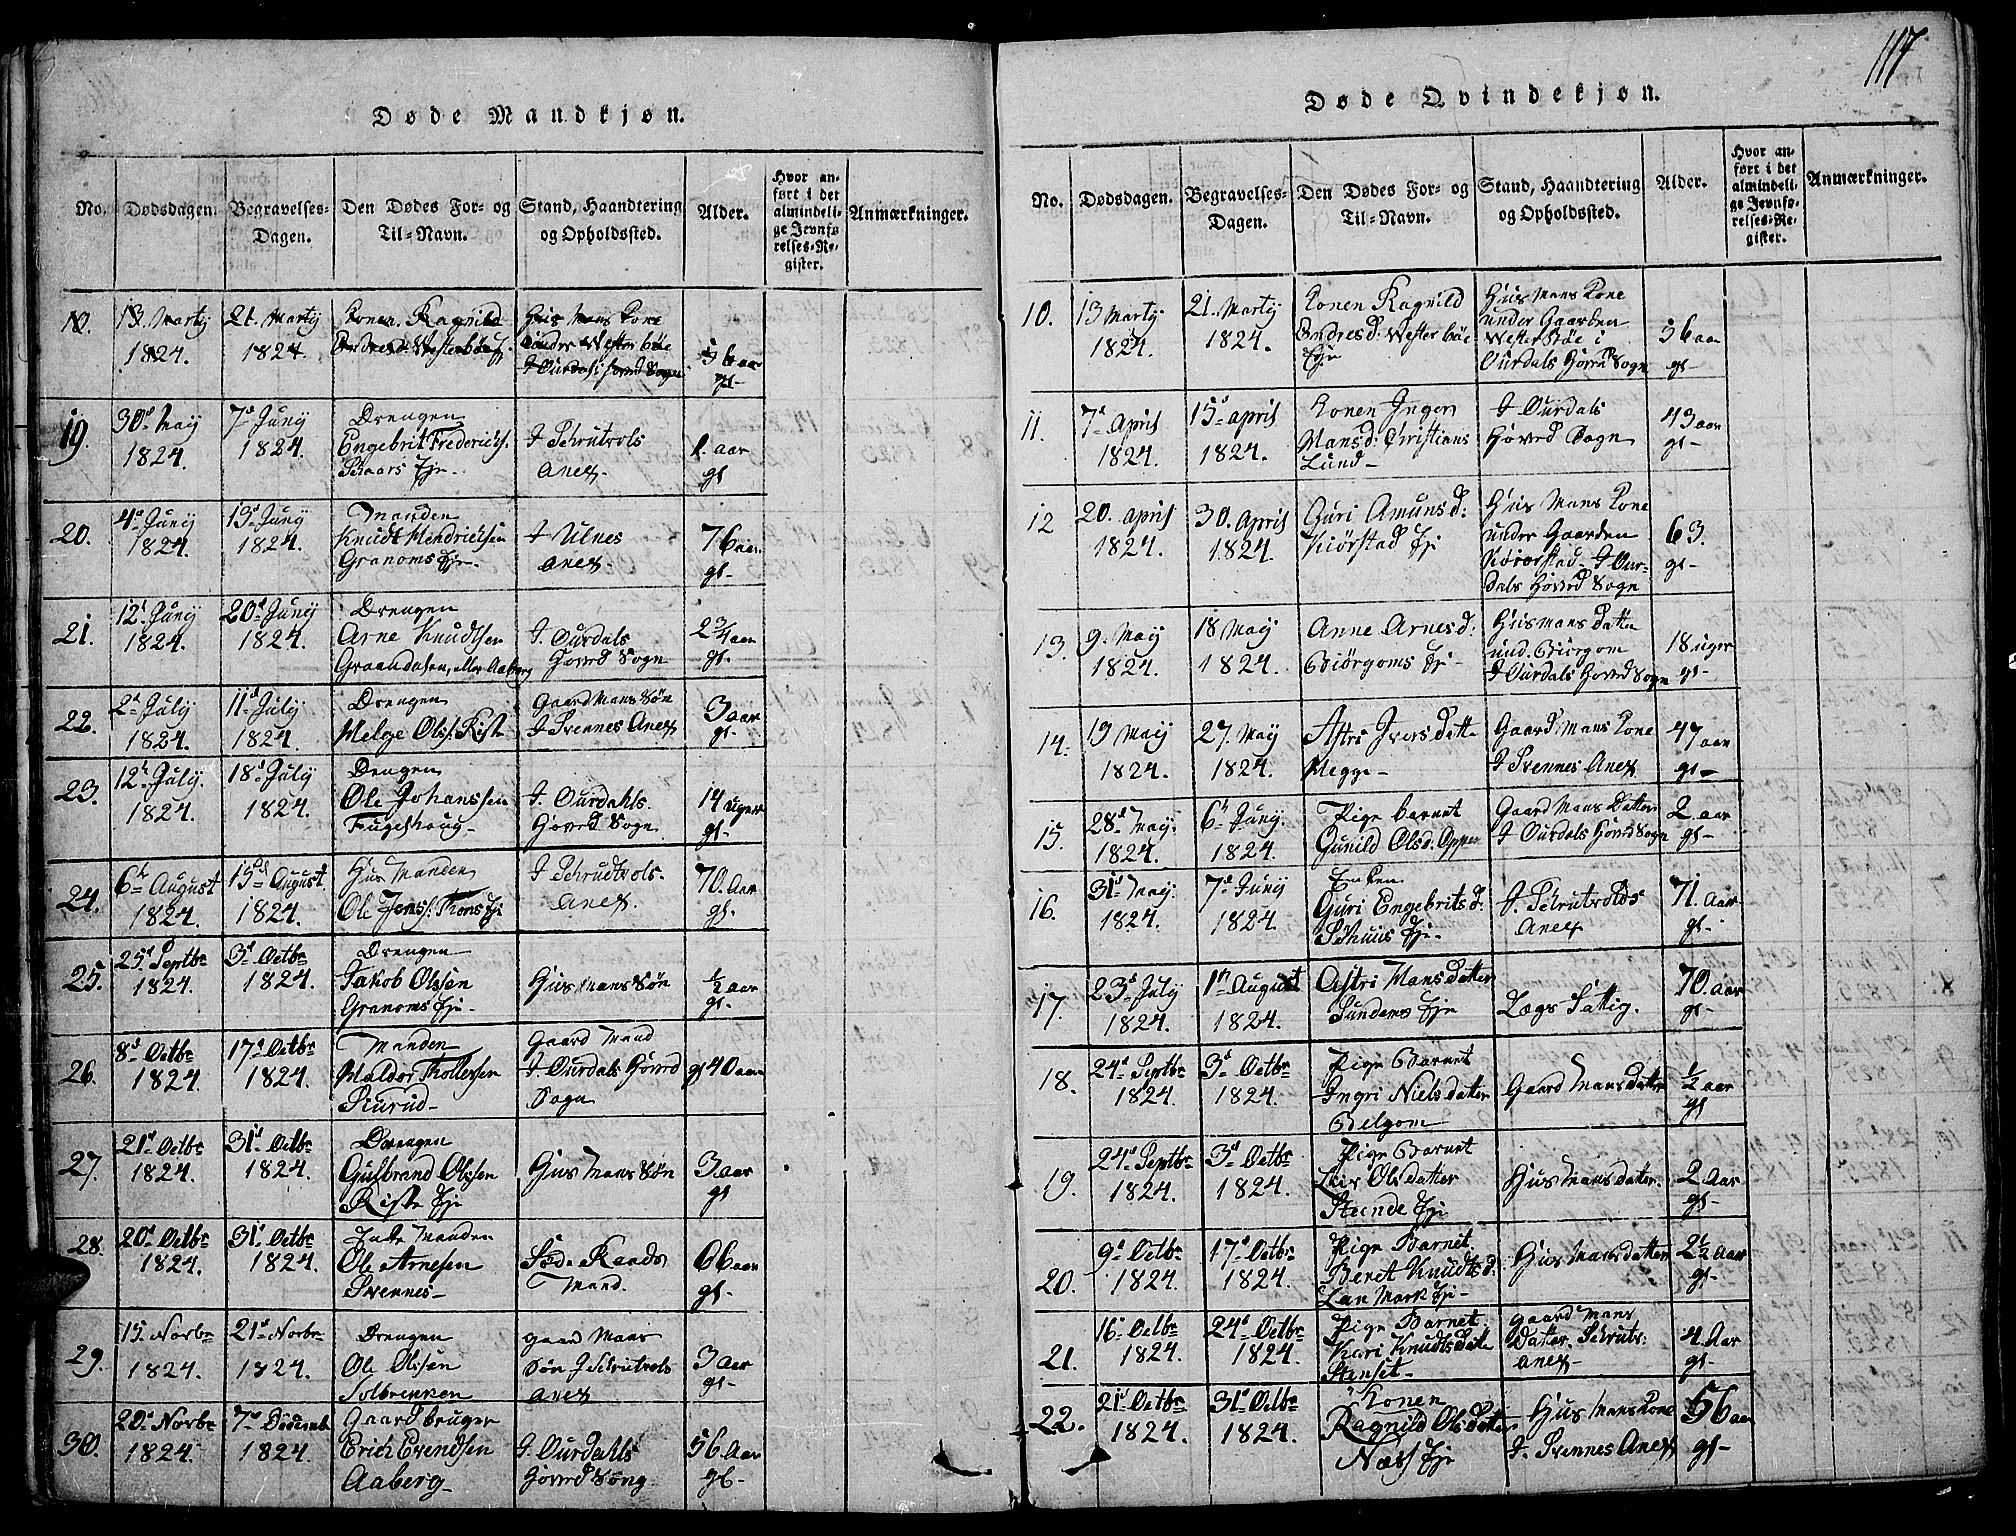 117
Døde Mandkjøn.
No.
Dødsdagen.
Begravelses-
Dagen.
Den Dødes For- og
Til-Navn.
Stand, Haandtering
og Opholdssted.
Alder.
Hvor an-
ført i det
almindeli-
ge Jevnfø-
relses-Re-
gister.
Anmærkninger.
13. Marty
1824.
21. Marty
1824.
Konen Ragnild
Huus Mans Kone
under Westerbøe
36 aar
gl-
19.
30d May
1824.
7d Juny
1824.
Drengen
Engebrit Frederichs.
Skaars Eje-
I Schrutvols
Anex.
1. aar
gl
20.
4d Juny
1824.
13d Juny
1824.
Manden
Knudt Hendrichsen
Granoms Eje-
I Ulnes
Anex.
76 aar
gl-
21.
12t Juny
1824.
20d Juny
1824.
Drengen
Arne Knudtsen
Graandalen, eller Aaberg
I. Ourdals
Hoved Sogn
2 3/4 aar
gl.
22.
2d July
1824.
11d July
1824.
Drengen
Helge Olss. Riste
Gaard Mans Søn
I Svennes Anex
3 aar
gl-
23.
12t July.
1824.
18d July
1824.
Drengen
Ole Johanssen
Fugelhaug-
I. Ourdahls
Hoved Sogn
14 uger
gl-
24.
6t August
1824.
15d August.
1824.
Huus Manden
Ole Jenss. Thons Eje
I Schrudtvols.
Anex.
70. Aar
gl-
25.
25d Septbr
1824.
3d Octbr
1824.
Drengen
Jakob Olssen
Granoms Eje-
Huus Mans Søn
1/2 aar
gl-
26.
8d Octbr
1824.
17d Octbr
1824.
Manden
Haldor Thollefsen
Skurud-
Gaard Mand
I Ourdals Hoved
Sogn
gl 40 aar
27.
21d Octbr
1824.
31d Octbr
1824.
Drengen
Gulbrand Olssen
Riste Eje
Huus Mans Søn
3. aar
gl
28.
20d Octbr
1824.
31d Octbr
1824.
Ole Arnesen
Svennes-
Mand.
66 aar
gl-
29.
15 Novbr
1824.
21d Novbr
1824.
Drengen
Ole Olssen
Solbrenken
gaard Mans
Søn I Schrutvols
Anex
3 aar
gl-
30.
20d Novbr
1824.
7d Decemb
1824.
Gaardbruger
Erich Evendsen
Aaberg-
I. Ourdahls
Hoved Song
56 Aar
gl-
Døde Qvindekjøn.
No.
Dødsdagen.
Begravelses-
Dagen.
Den Dødes For- og
Til-Navn.
Stand, Haandtering
og Opholdssted.
Alder.
Hvor an-
ført i det
almindeli-
ge Jevnfø-
relses-Re-
gister.
Anmærkninger.
10.
13 Marty
1824.
21. Marty
1824.
Konen Ragnild
Endresd: Westerbøe
Eje
Huus Mans Kone
under Gaarden
Westerbøe i
Ourdals Hovd Sogn
36 aar
gl-
11.
7d April
1824.
15d April
1824.
Konen Inger
Hansd: Christians
Lund-
I Ourdals
Hoved Sogn
43 aar
gl-
12
20. April
1824.
30. April
1824.
Guri Amunsd:
Kiørstad Eje
Huus Mans Kone
under Gaarden
Kiørstad- I Our-
dals Hoved Sogn
63.
gl-
13.
9. May
1824.
18 May
1824.
Anne Arnesd:
Biørgoms Eje-
Huusmans Datter
und. Biørgom
I Ourdals Hovd Sogn
18 uger
gl-
14.
19 May
1824.
27. May
1824.
Astri Iversdatte
Hegge-
Gaard Mans Kone
I Svennes Anex
47 aar
gl-
15.
28d May.
1824.
6t Juny.
1824.
Pige Barnet
Gunild Olsd. Oppen
Gaard Mans Datter
I Ourdals Hovd Sogn
2. aar
gl-
16.
31d May.
1824.
7d Juny
1824.
Enken
Guri Engebritsd.
I. Schrutvolds
Anex
71. Aar
gl-
17.
23d July
1824.
1n August
1824.
Astri Hansdatter
Sundems Eje
Lægs Fattig.
70. aar
gl-
18.
24d Septbr
1824.
3d Octbr
1824.
Pige Barnet
Ingri Nielsdatter
Belgom
Gaard Mans datter
1/2 aar
gl
19.
24d Septbr
1824.
3d Octbr
1824.
Pige Barnet
Olsdatter
Steende Eje
Huus Mans datter.
2 Aar
gl-
20.
9d Octbr
1824.
17d Octbr
1824.
Pige Barnet
Beret Knudtsd.
Lan Mark Eje-
Huus Mans datter
2 1/2 Aar
gl-
21.
16 Octbr
1824.
24d Octbr
1824.
Pige Barnet
Kari Knudtsdatte
Stenset-
gaard Mans
Datter. Schruts:
Anex-
4. Aar
gl-
22.
21d Octbr
1824.
31d Octbr
1824.
Konen
Ragnild Olsdatter
Næss Eje
Huus Mans Kone
I. Svennes Anex
56 aar
gl-